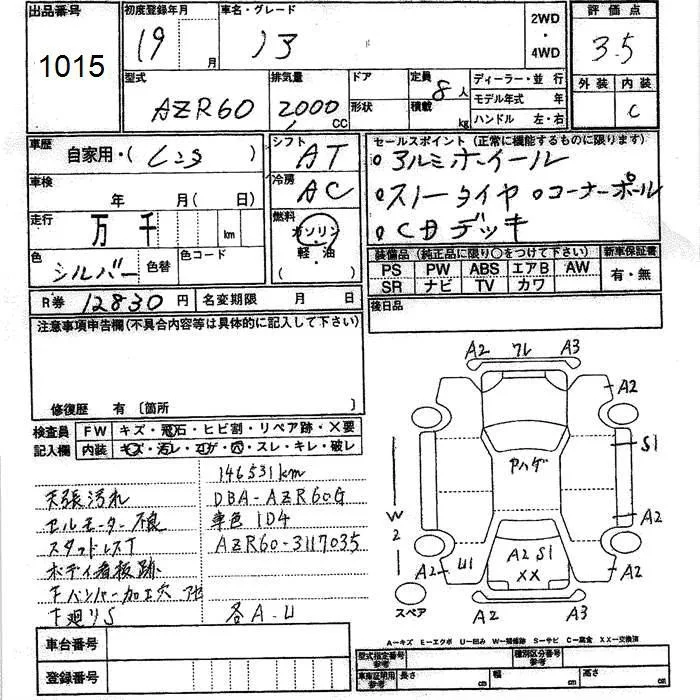 出品番号 初度登録年月 車名・グレード 評価点
1015 19 月 ノア 2WD・4WD 3.5
型式 排気量 ドア 定員 ディーラー・並行 外装 内装
AZR60 2000CC 形状 8人 積載 kg モデル年式 年 ハンドル 左・右 C
車歴 自家用・( ) シフト AT セールスポイント(正常に機能するものに限ります)
車検 年 月( 日) 冷房 AC ・アルミホイール
走行 万 千 km 燃料 ガソリン・軽・油( ) ・スノータイヤ ・コーナーポール
色 シルバー 色替 色コード ・CDデッキ
装備品(純正品に限り○をつけて下さい) 新車保証書
PS PW ABS エアB AW 有・無
SR ナビ TV カワ
R券 12830円 名変期限 月 日 後日品
注意事項申告欄(不具合内容等は具体的に記入して下さい)
修復歴 有〔箇所
検査員記入欄 FW キズ・飛石・ヒビ割・リペア跡・×要
内装 キズ・汚レ・コゲ・穴・スレ・キレ・破レ
146531km
天張汚れ DBA-AZR60G
セルモーター不良 車色1D4
スタッドレスT AZR60-3117035
ボディ看板跡
Fバンパー加工穴
下廻りS 各A.U
A2 ワレ A3
A2
S1
Pハゲ
W2
A2
A2 U1 A2 S1 XX A2
スペア A2 A3
車台番号
登録番号
A-キズ E-エクボ U-凹み W-補修跡 S-サビ C-腐食 XX-交換済
型式指定番号 参考 種別区分番号 参考
車庫証明用 参考 長さ cm 幅 cm 高さ cm